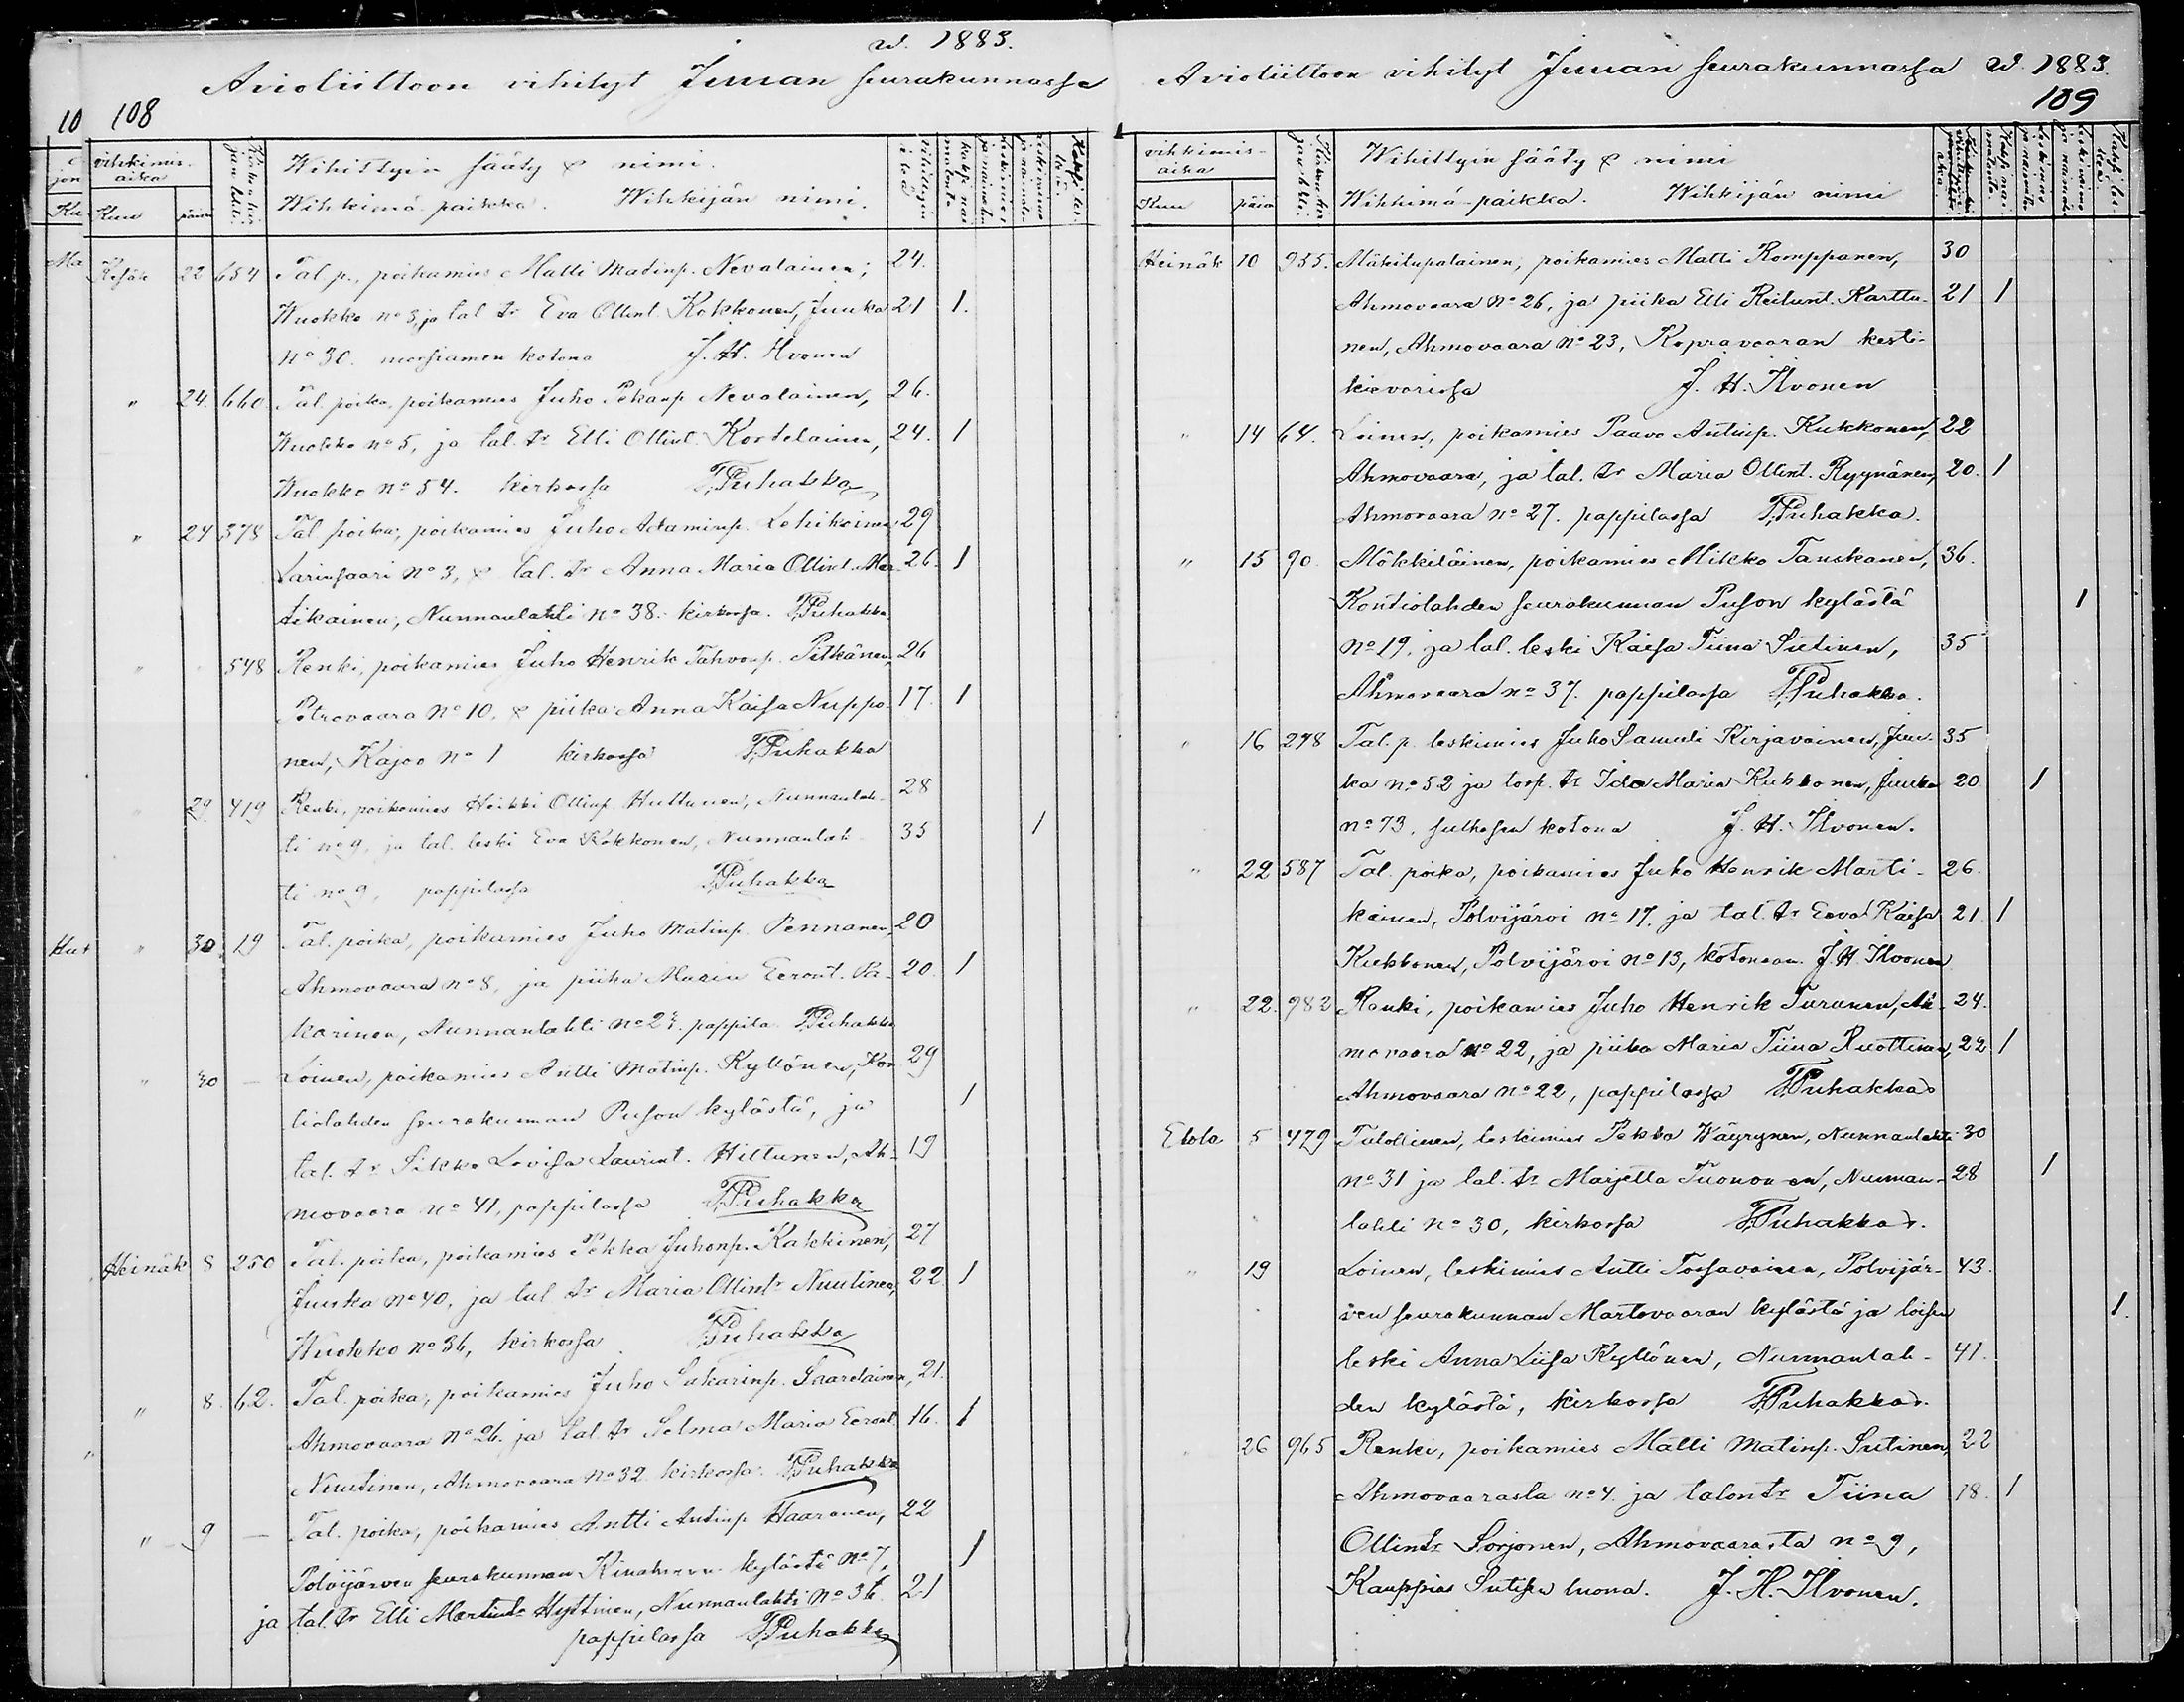 w. 1883.
Avioliittoon vihityt Juuan seurakunnassa
108
10
vihkimis-aika
Kuu
päivä
Wihittyin sääty & nimi.
Wihkimä paikka. Wihkijän nimi.
Kesäk 22 654 Tal p., poikamies Matti Matinp. Nevalainen; 24.
Wuokko no 3, ja tal tr Eva Ollint. Kokkonen, Juuka 21 1.
no 30. morsiamen kotona J. H. Ilvonen
" 24. 660 Tal. poika, poikamies Juho Pekanp Nevalainen, 26.
Wuokko no 5, ja tal. tr Elli Ollint. Kortelainen, 24. 1
Wuokko no 54. kirkossa Puhakka
" 24 378 Tal poika, poikamies Juho Adaminp. Lehikoinen, 29
Larinsaari No 3, & tal. tr Anna Maria Ollint. Mar- 26. 1
tikainen, Nunnanlahti no 38. kirkossa. Puhakka
" 548 Renki, poikamies Juho Henrik Tahvonp. Pitkänen, 26
Petrovaara No 10, & piika Anna Kaisa Nuppo- 17. 1
nen, Kajoo No 1 kirkossa Puhakka
" 29. 419 Renki, poikamies Heikki Ollinp. Huttunen, Nunnanlah- 28
ti no 9, ja tal. leski Eva Kokkonen, Nunnanlah- 35 1
ti no 9, pappilassa Puhakka
" 30. 19 Tal. poika, poikamies Juho Matinp. Pennanen, 20
Ahmovaara no 8, ja piika Maria Eeront. Pa- 20. 1
karinen, Nunnanlahti no 27. pappila. Puhakka
" 30 — Loinen, poikamies Antti Matinp. Kyllönen, Kon- 29
tiolahden seurakunnan Puson kylästä, ja 1
tal. tr Sikke Lovisa Laurint. Hiltunen, Ah- 19
movaara no 41, pappilassa Puhakka
Heinäk 8 250 Tal. poika, poikamies Pekka Juhonp. Kakkinen, 27
Juuka no 40, ja tal tr Maria Ollintr Nuutinen, 22 1
Wuokko no 36, kirkossa Puhakka
" 8. 62. Tal. poika, poikamies Juho Sakarinp. Saarelainen, 21.
Ahmovaara No 26. ja tal. tr Selma Maria Eeront. 16. 1
Nuutinen, Ahmovaara No 32 kirkossa. Puhakka
" 9 — Tal. poika, poikamies Antti Antinp Haaranen, 22
Polvijärven seurakunnan kylästä No 7, 1
ja tal. tr Elli Martintr Hyttinen, Nunnanlahti No 36. 21
pappilassa Puhakka
Avioliittoon vihityt Juuan seurakunnassa w. 1883.
109
vihkimis-aika
Kuu
päivä
Wihittyin sääty & nimi
Wihkimä-paikka. Wihkijän nimi
Heinäk 10 955. Mäkitupalainen, poikamies Matti Romppanen, 30
Ahmovaara No 26, ja piika Elli Reilunt. Karttu- 21 1
nen, Ahmovaara No 23, Kopravaaran kesti-
kievarissa J. H. Ilvonen
" 14 64. Loinen, poikamies Paavo Antinp. Kukkonen, 22
Ahmovaara, ja tal. tr Maria Ollint. Ryynänen, 20. 1
Ahmovaara no 27. pappilassa Puhakka.
" 15 90. Mökkiläinen, poikamies Mikko Tanskanen, 36.
Kontiolahden seurakunnan Puson kylästä 1
No 19, ja tal. leski Kaisa Tiina Sutinen, 35
Ahmovaara no 37. pappilassa Puhakka.
" 16 278 Tal. p. leskimies Juho Samuli Kirjavainen, Juu- 35
ka no 52 ja torp. tr Ida Maria Kukkonen, Juuka 20 1
no 73. sulhasen kotona J. H. Ilvonen.
" 22 587 Tal. poika, poikamies Juho Henrik Marti- 26.
kainen, Polvijärvi no 17. ja tal. tr Eeva Kaisa 21. 1
Kukkonen, Polvijärvi no 13, kotonaan. J. H. Ilvonen
" 22. 982 Renki, poikamies Juho Henrik Turunen, Ah- 24.
movaara no 22, ja piika Maria Tiina Ruottinen, 22 1
Ahmovaara no 22, pappilassa Puhakka
Elok. 5 479 Tulollinen, leskimies Pekka Wäyrynen, Nunnanlahti 30
no 31 ja tal. tr Marjetta Tuononen, Nunnan- 28 1
lahti no 30, kirkossa Puhakka.
" 19 Loinen, leskimies Antti Tossavainen, Polvijär- 43.
ven seurakunnan Martovaaran kylästä ja loisen 1.
leski Anna Liisa Kyllönen, Nunnanlah- 41.
den kylästä, kirkossa Puhakka.
26 965 Renki, poikamies Matti Matinp. Sutinen, 22
Ahmovaarasta no 4. ja talontr Tiina 18. 1
Ollintr Sorjonen, Ahmovaarasta no 9,
Kauppias Sutisen luona. J. H. Ilvonen.